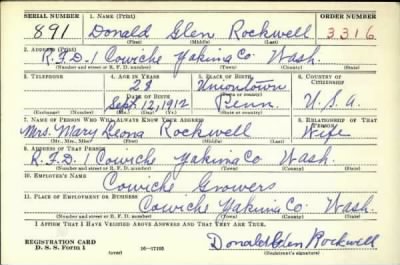 SERIAL NUMBER 1. NAME (Print) ORDER NUMBER
891 Donald Glen Rockwell 3316
(First) (Middle) (Last)
2. ADDRESS (Print)
R.F.D. 1 Cowiche Yakima Co Wash.
(Number and street or R. F. D. number) (Town) (County) (State)
3. TELEPHONE 4. AGE IN YEARS 5. PLACE OF BIRTH 6. COUNTRY OF CITIZENSHIP
28 Uniontown
DATE OF BIRTH (Town or county)
Sept. 12, 1912 Penn. U.S.A.
(Exchange) (Number) (Mo.) (Day) (Yr.) (State or country)
7. NAME OF PERSON WHO WILL ALWAYS KNOW YOUR ADDRESS 8. RELATIONSHIP OF THAT PERSON
Mrs. Mary Leona Rockwell Wife
(Mr., Mrs., Miss) (First) (Middle) (Last)
9. ADDRESS OF THAT PERSON
R.F.D. 1 Cowiche Yakima Co Wash.
(Number and street or R. F. D. number) (Town) (County) (State)
10. EMPLOYER'S NAME
Cowiche Growers
11. PLACE OF EMPLOYMENT OR BUSINESS
Cowiche Yakima Co. Wash.
(Number and street or R. F. D. number) (Town) (County) (State)
I AFFIRM THAT I HAVE VERIFIED ABOVE ANSWERS AND THAT THEY ARE TRUE.
REGISTRATION CARD
D. S. S. Form 1 (over) Donald Glen Rockwell
(Registrant's signature)